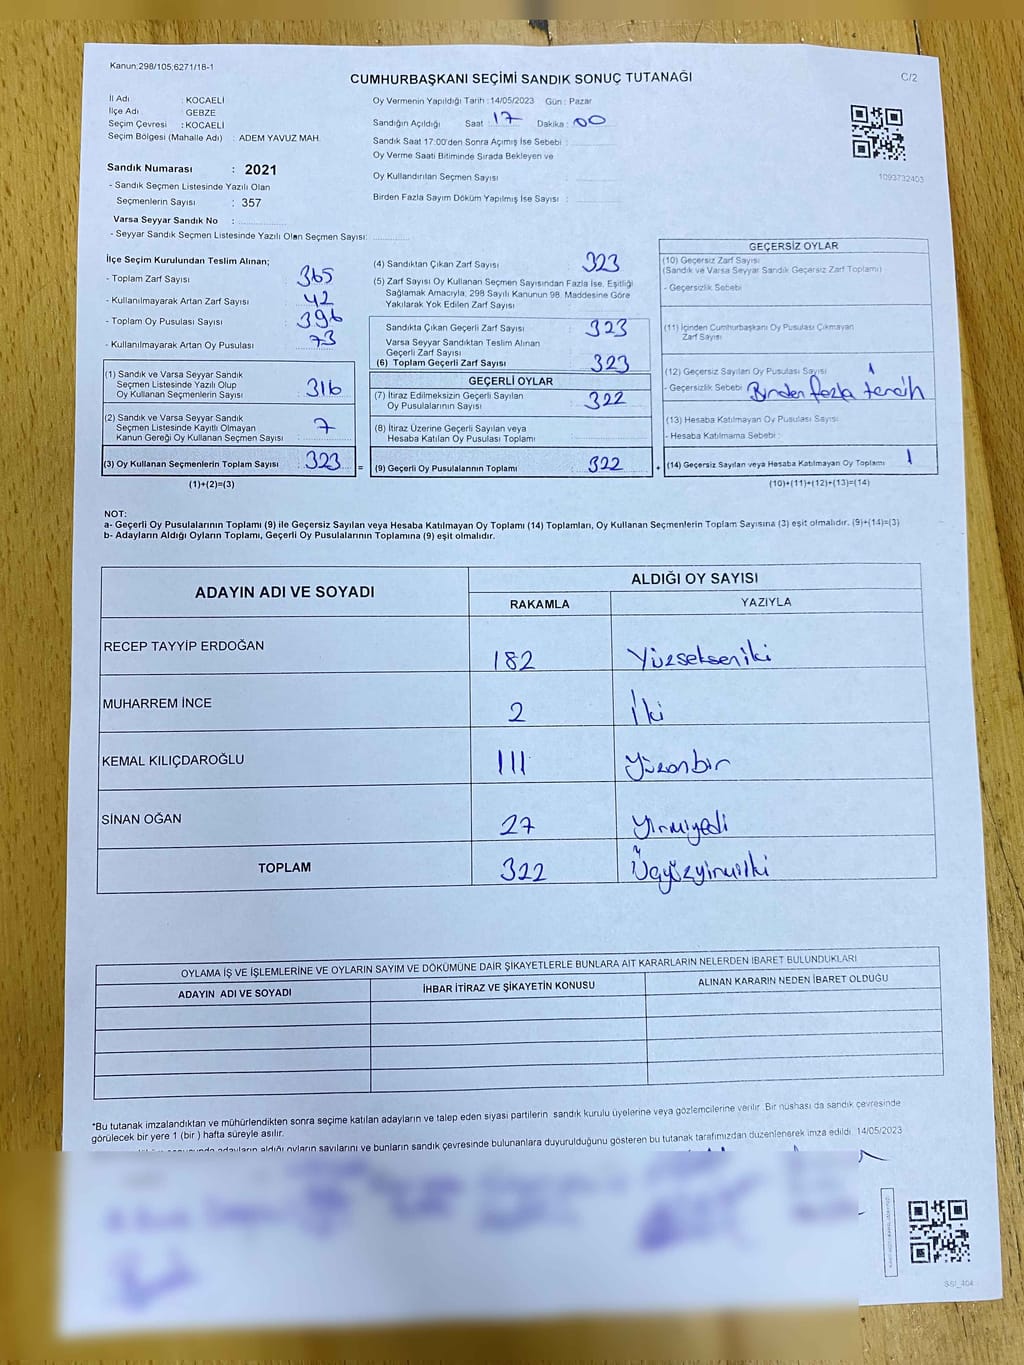 Kanun;298/105;6271/18-1
CUMHURBAŞKANI SEÇİMİ SANDIK SONUÇ TUTANAĞI
C/2
İl Adı : KOCAELİ
İlçe Adı : GEBZE
Seçim Çevresi : KOCAELİ
Seçim Bölgesi (Mahalle Adı) : ADEM YAVUZ MAH.
Sandık Numarası : 2021
- Sandık Seçmen Listesinde Yazılı Olan
Seçmenlerin Sayısı : 357
Varsa Seyyar Sandık No :
- Seyyar Sandık Seçmen Listesinde Yazılı Olan Seçmen Sayısı:
Oy Vermenin Yapıldığı Tarih : 14/05/2023 Gün : Pazar
Sandığın Açıldığı Saat : 17 Dakika : 00
Sandık Saat 17:00'den Sonra Açımış İse Sebebi :
Oy Verme Saati Bitiminde Sırada Bekleyen ve
Oy Kullandırılan Seçmen Sayısı :
Birden Fazla Sayım Döküm Yapılmış İse Sayısı :
1093732403
İlçe Seçim Kurulundan Teslim Alınan;
- Toplam Zarf Sayısı : 365
- Kullanılmayarak Artan Zarf Sayısı : 42
- Toplam Oy Pusulası Sayısı : 396
- Kullanılmayarak Artan Oy Pusulası : 73
(1) Sandık ve Varsa Seyyar Sandık
Seçmen Listesinde Yazılı Olup
Oy Kullanan Seçmenlerin Sayısı : 316
(2) Sandık ve Varsa Seyyar Sandık
Seçmen Listesinde Kayıtlı Olmayan
Kanun Gereği Oy Kullanan Seçmen Sayısı : 7
(3) Oy Kullanan Seçmenlerin Toplam Sayısı : 323
(1)+(2)=(3)
(4) Sandıktan Çıkan Zarf Sayısı : 323
(5) Zarf Sayısı Oy Kullanan Seçmen Sayısından Fazla İse, Eşitliği
Sağlamak Amacıyla, 298 Sayılı Kanunun 98. Maddesine Göre
Yakılarak Yok Edilen Zarf Sayısı :
Sandıkta Çıkan Geçerli Zarf Sayısı : 323
Varsa Seyyar Sandıktan Teslim Alınan
Geçerli Zarf Sayısı :
(6) Toplam Geçerli Zarf Sayısı : 323
GEÇERLİ OYLAR
(7) İtiraz Edilmeksizin Geçerli Sayılan
Oy Pusulalarının Sayısı : 322
(8) İtiraz Üzerine Geçerli Sayılan veya
Hesaba Katılan Oy Pusulası Toplamı :
= (9) Geçerli Oy Pusulalarının Toplamı : 322
GEÇERSİZ OYLAR
(10) Geçersiz Zarf Sayısı :
(Sandık ve Varsa Seyyar Sandık Geçersiz Zarf Toplamı)
- Geçersizlik Sebebi :
(11) İçinden Cumhurbaşkanı Oy Pusulası Çıkmayan
Zarf Sayısı :
(12) Geçersiz Sayılan Oy Pusulası Sayısı : 1
- Geçersizlik Sebebi : Birden fazla tercih
(13) Hesaba Katılmayan Oy Pusulası Sayısı:
- Hesaba Katılmama Sebebi :
+ (14) Geçersiz Sayılan veya Hesaba Katılmayan Oy Toplamı : 1
(10)+(11)+(12)+(13)=(14)
NOT:
a- Geçerli Oy Pusulalarının Toplamı (9) ile Geçersiz Sayılan veya Hesaba Katılmayan Oy Toplamı (14) Toplamları, Oy Kullanan Seçmenlerin Toplam Sayısına (3) eşit olmalıdır. (9)+(14)=(3)
b- Adayların Aldığı Oyların Toplamı, Geçerli Oy Pusulalarının Toplamına (9) eşit olmalıdır.
ADAYIN ADI VE SOYADI
ALDIĞI OY SAYISI
RAKAMLA YAZIYLA
RECEP TAYYİP ERDOĞAN 182 Yüzsekseniki
MUHARREM İNCE 2 İki
KEMAL KILIÇDAROĞLU 111 Yüzonbir
SİNAN OĞAN 27 Yirmiyedi
TOPLAM 322 Üçyüzyirmiiki
OYLAMA İŞ VE İŞLEMLERİNE VE OYLARIN SAYIM VE DÖKÜMÜNE DAİR ŞİKAYETLERLE BUNLARA AİT KARARLARIN NELERDEN İBARET BULUNDUKLARI
ADAYIN ADI VE SOYADI İHBAR İTİRAZ VE ŞİKAYETİN KONUSU ALINAN KARARIN NEDEN İBARET OLDUĞU
*Bu tutanak imzalandıktan ve mühürlendikten sonra seçime katılan adayların ve talep eden siyasi partilerin sandık kurulu üyelerine veya gözlemcilerine verilir. Bir nüshası da sandık çevresinde
görülecek bir yere 1 (bir ) hafta süreyle asılır.
adayların aldığı oyların sayılarını ve bunların sandık çevresinde bulunanlara duyurulduğunu gösteren bu tutanak tarafımızdan düzenlenerek imza edildi. 14/05/2023
SSI_404